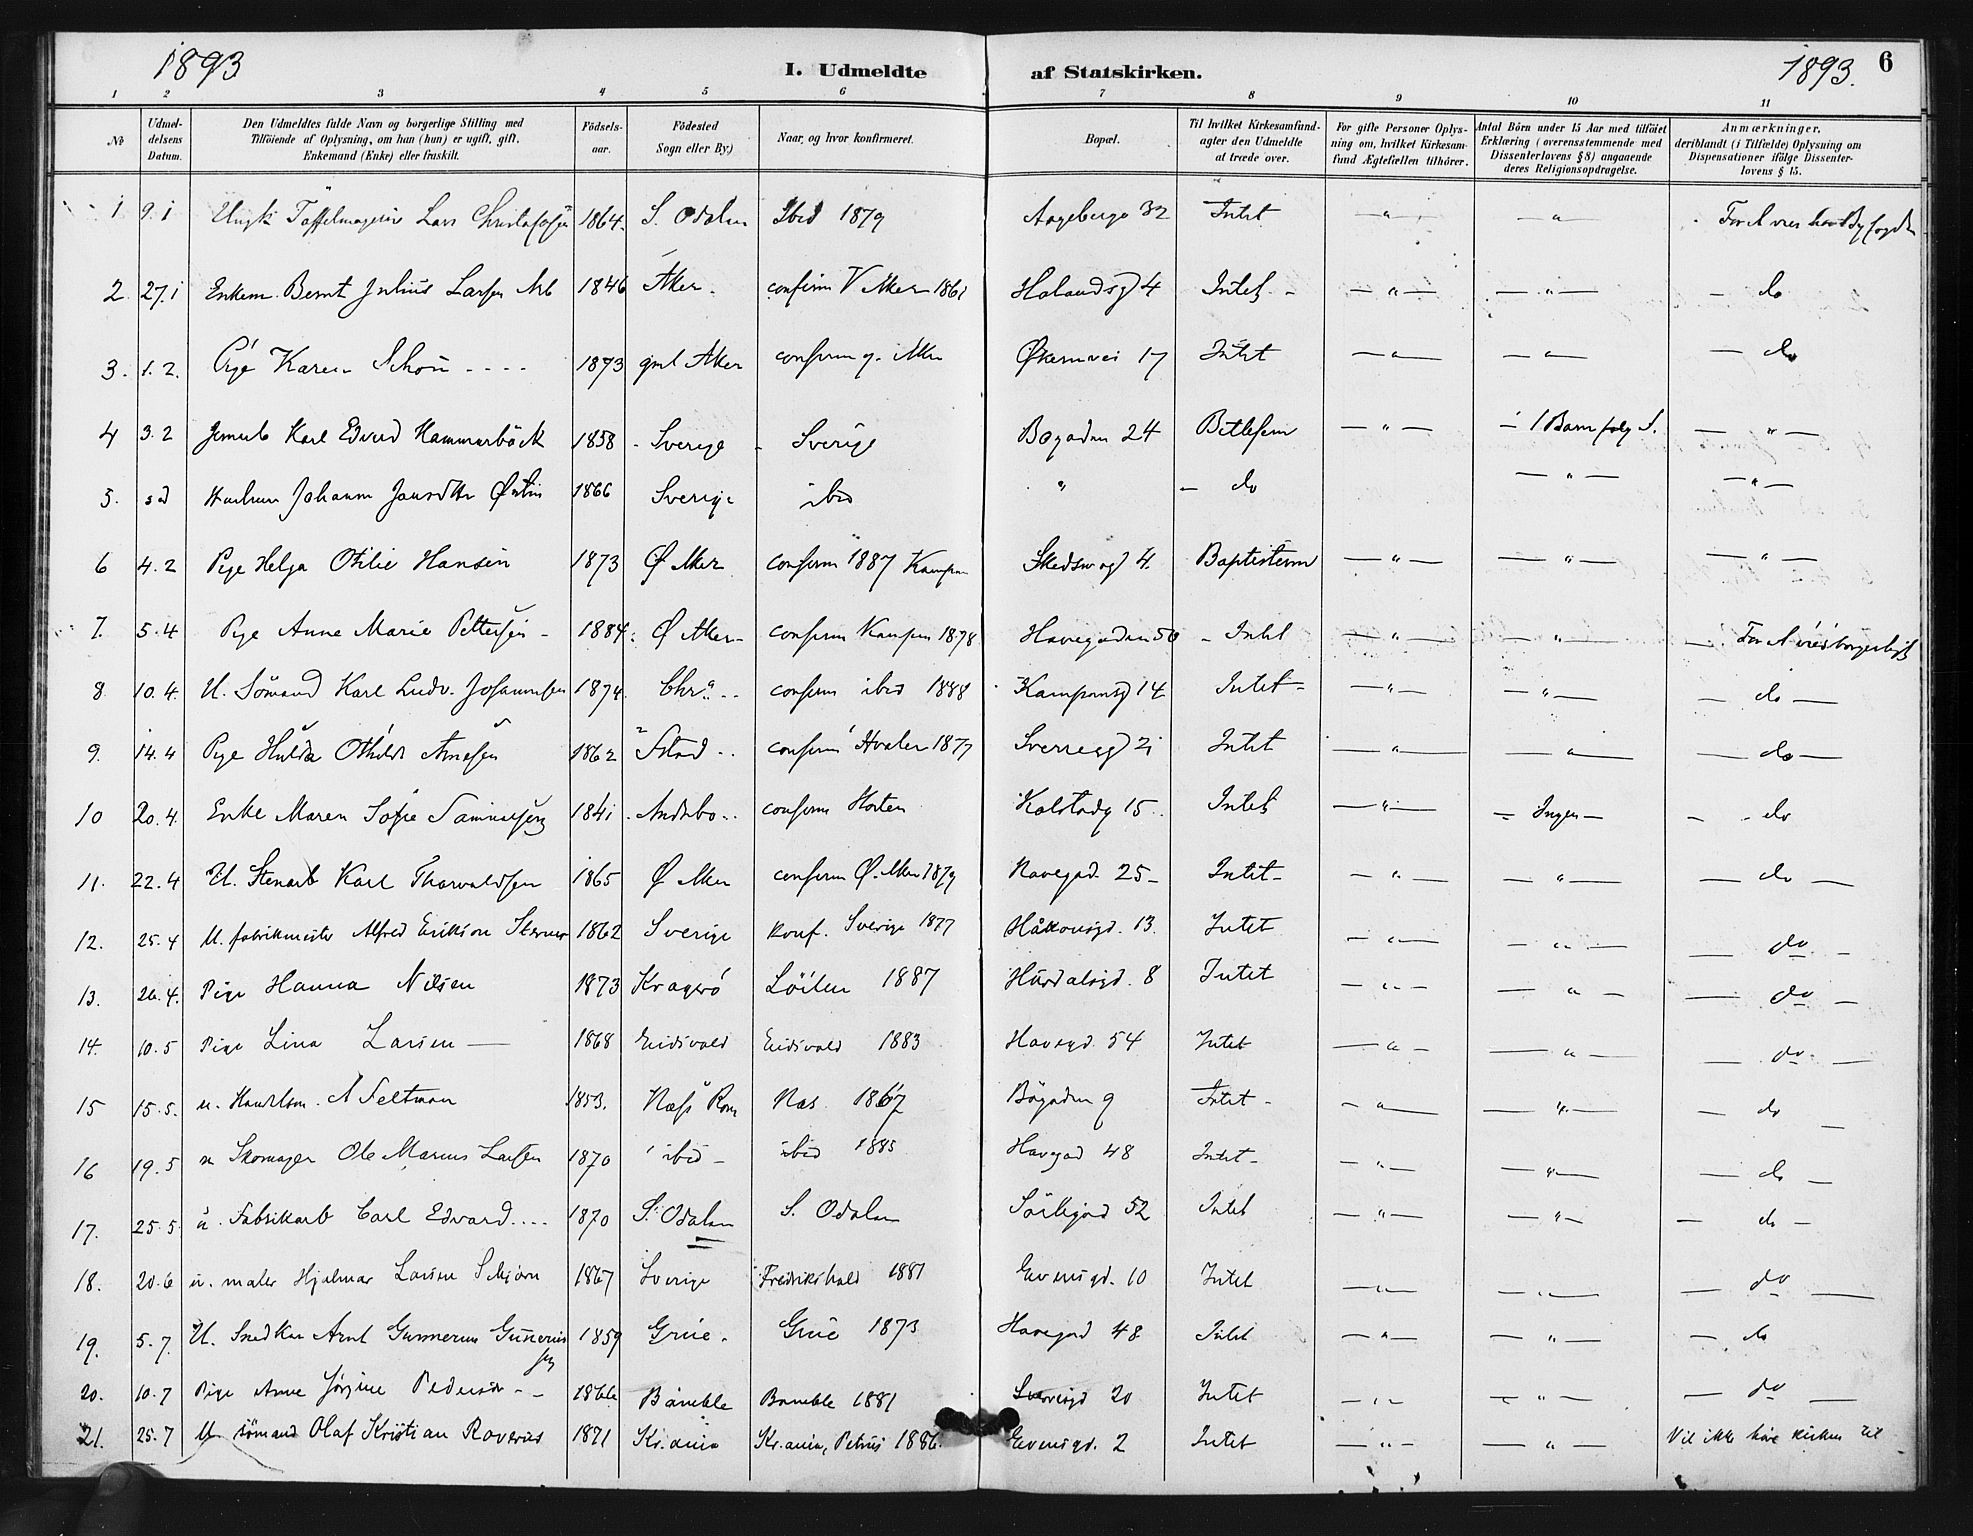 1893 I. Udmeldte af Statskirken. 1893. 6
1 2 3 4 5 6 7 8 9 10 11
№ Udmel- delsens Datum. Den Udmeldtes fulde Navn og borgerlige Stilling med Tilföiende af Oplysning, om han (hun) er ugift, gift, Enkemand (Enke) eller fraskilt. Födsels- aar. Födested Sogn eller By.) Naar, og hvor konfirmeret. Bopæl. Til hvilket Kirkesamfund- agter den Udmeldte at træde over. For gifte Personer Oplys- ning om, hvilket Kirkesam- fund Ægtefællen tilhörer. Antal Börn under 15 Aar med tilföiet Erklæring (overensstemmende med Dissenterlovens § 8) angaaende deres Religionsopdragelse. Anmærkninger, deriblandt (i Tilfælde) Oplysning om Dispensationer ifölge Dissenter- lovens § 15.
1 9.1 Lars 1864. S. Odalen Ibid 1879 Aageberg 32 Intet — " — — " — For A vies
2 27.1 Enkem. Bernt Julius Larsen Arb 1846 Aker. confirm V Aker 1861 4 Intet — " — — " — — do
3. 1.2. Pige Karen 1873 gml Aker confirm g. Aker Økernvei 17 Intet — " — — " — — do
4 3.2 Karl Edvard Hammarbäck 1858 Sverige Sverige Bøgaden 24 Betlehem — " — 1 Barn følg — " —
5. sd Johanne 1866 Sverige ibid " — do — " — — " —
6 4.2 Pige Helga Otilie Hansen 1873 Ø Aker confirm 1887 Kampen 4. Baptisterne — " — — " — — " —
7. 5.4 Pige Anne Marie Pettersen 1884. Ø Aker confirm Kampen 1878 Havegaden 50 Intet — " — — " — For A vies borgerligt
8 10.4. U. Sömand Karl Ludv. Johannesen 1874. Chr.a confirm ibid 1888 Kampensg 14 Intet — " — — " — — do —
9. 14.4 Pige Hulda 1862 confirm Hvaler 1877 Sverresg 21 Intet — " — — " — — do —
10 20.4. Enke Maren Sofie 1841 Andebo confirm Horten Kolstadg 15. Intet — " — — Ingen — — do
11. 22.4 U. Stenarb Karl Thorvaldsen 1865 Ø Aker confirm Ø. Aker 1879 Havegad. 25 Intet — " — — " — — do —
12. 25.4 U. fabrikmester Alfred Erikson 1862 Sverige konf. Sverige 1877 Håkonsgd. 13. Intet — " — — " — — do —
13. 26.4. Pige Hanna Nilsen 1873 Kragerö Löiten 1887 Hurdalsgd. 8 Intet — " — — " — — do —
14. 10.5 Pige Lina Larsen — 1868 Eidsvold Eidsvold 1883 Havegd. 54 Intet — " — — " — — do —
15 15.5. u. Handelsm. A Feltman 1853. Næs Rom Næs 1867 Bögaden 9 Intet — " — — " — — do —
16 19.5 u Skomager Ole Marius Larsen 1870 ibid ibid 1885 Havegad 48 Intet — " — — " — — do —
17. 25.5. u. Fabrikarb Carl Edvard.... 1870 S. Odalen S. Odalen Sörligad 52 Intet — " — — " — — do —
18. 20.6 u. maler Hjalmar Larsen 1867 Sverige Fredrikshald 1881 Eivensgd. 10 Intet — " — — " — — do —
19. 5.7. U. Snedker Arnt Gunnerus Gunnerius sen 1859 Grue. Grue 1873 Havegad 48 Intet — " — — " — — do
20. 10.7 Pige Anne Jörgine Pedersen 1866 Bamble Bamble 1881 Sverresgd 20 Intet — " — — " — — do —
21. 25.7 U. sömand Olaf Kristian 1871 Kr.ania Kr.ania, Petrus 1886. Eivensgd. 2 Intet — " — — " — Vil ikke høre kirken til